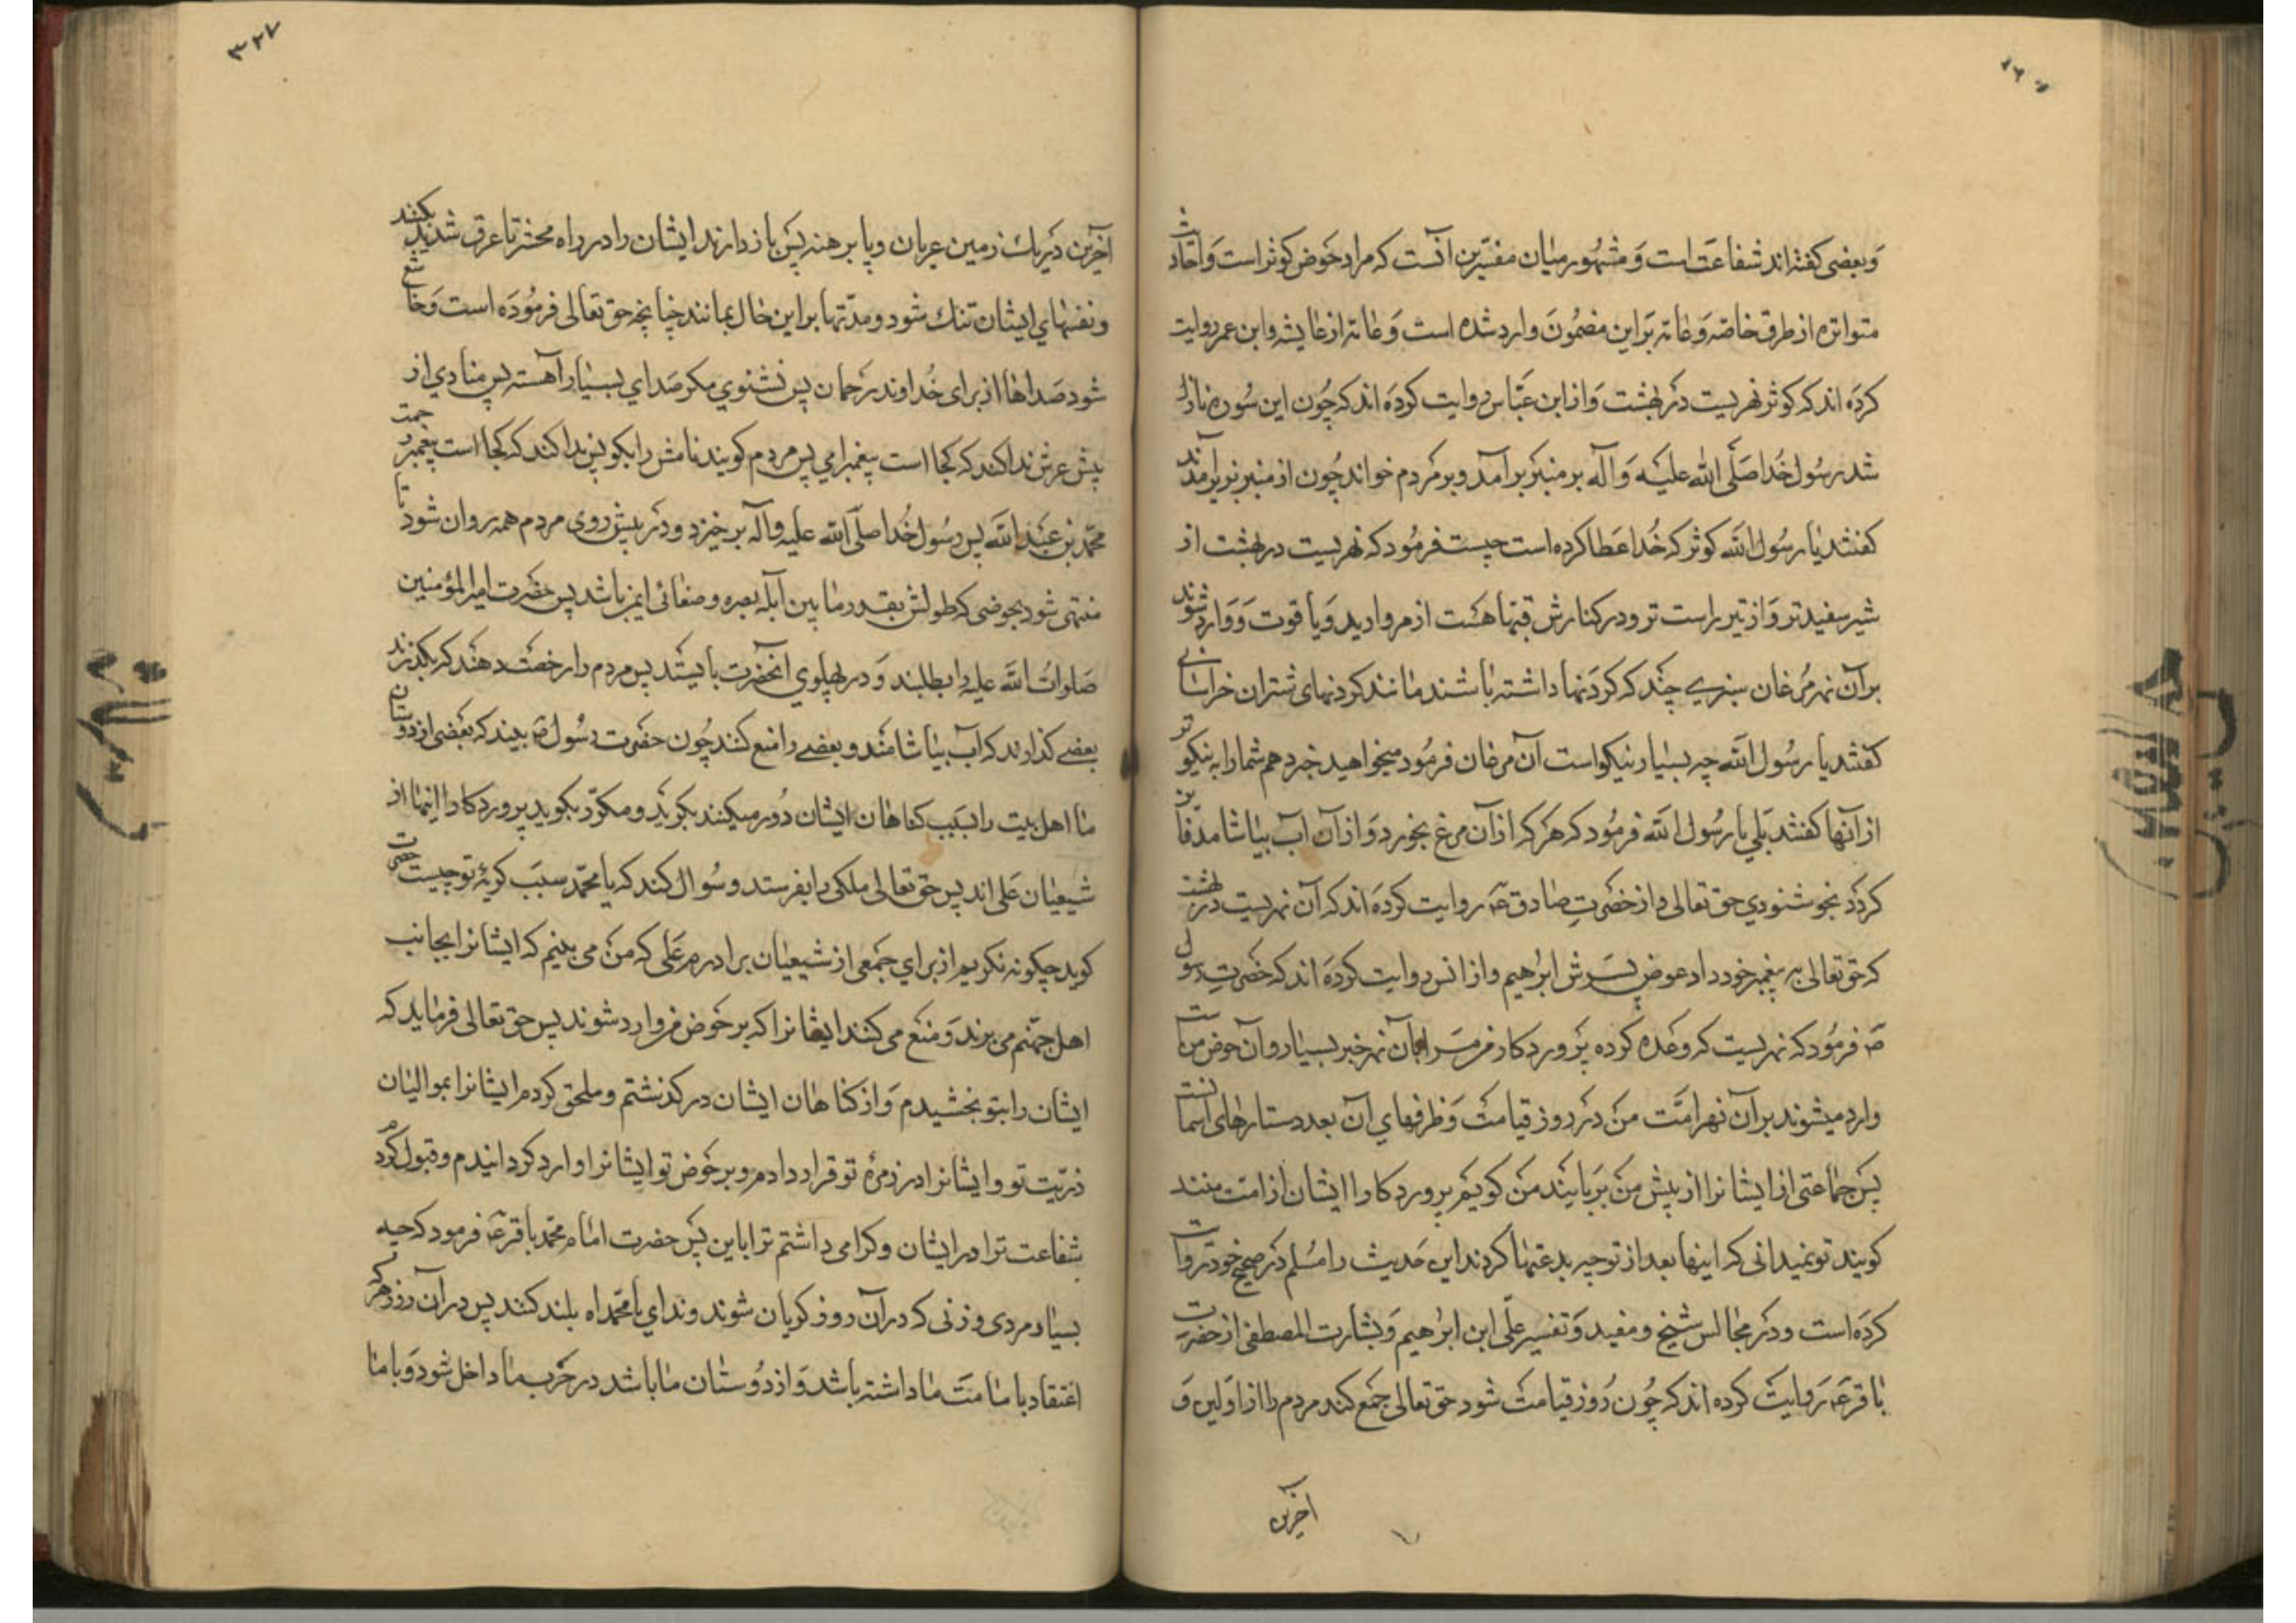 وبعضی کفته اند شفاعت است و مشهور میان مفسرین آنست که مراد حوض کوثر است و احادیث
متواتره از طرق خاصه و عامه بر این مضمون وارد شده است و عامه از عایشه و ابن عمر روایت
کرده اند که کوثر نهریست در بهشت و از ابن عباس روایت کرده اند که چون این سوره نازل
شد رسول خدا صلی الله علیه و آله بر منبر برآمد و بر مردم خواند چون از منبر بزیر آمدند
کفتند یا رسول الله کوثر که خدا عطا کرده است چیست فرمود که نهریست در بهشت از
شیر سفیدتر و از تیر راست تر و در کنارش قبها هست از مروارید و یاقوت و وارد شوند
بر آن نهر مرغان سبزی چند که کردنها داشته باشند مانند کردنهای شتران خراسانی
کفتند یا رسول الله چه بسیار نیکو است آن مرغان فرمود میخواهید خبر دهم شما را به نیکوتر
از آنها کفتند بلی یا رسول الله فرمود که هر که از آن مرغ بخورد و از آن آب بیاشامد فایز
کردد بخوشنودی حق تعالی و از حضرت صادق ع روایت کرده اند که آن نهریست در بهشت
که حق تعالی به پیغمبر خود داد عوض پسرش ابراهیم و از انس روایت کرده اند که حضرت رسول
ص فرمود که نهریست که وعده کرده پروردکار من مرا بآن نهر خیر بسیار و آن حوض من است
وارد میشوند بر آن نهر امت من در روز قیامت و ظرفهای آن بعدد ستارهای آسمانست
پس جماعتی از ایشانرا از پیش من بربایند من کویم پروردکارا ایشان از امت منند
کویند تو نمیدانی که اینها بعد از تو چه بدعتها کردند این حدیث را مسلم در صحیح خود روایت
کرده است و در مجالس شیخ و مفید و تفسیر علی ابن ابراهیم و بشارت المصطفی از حضرت
باقر ع روایت کرده اند که چون روز قیامت شود حق تعالی جمع کند مردم را از اولین و
آخرین
۳۲۷
آخرین در یك زمین عریان و پا برهنه پس باز دارند ایشان را در راه محشر تا عرق شدید بکنند
و نفسهای ایشان تنك شود و مدتها بر این حال بمانند چنانچه حق تعالی فرموده است و خاشع
شود صداها از برای خداوند رحمان پس نشنوی مکر صدای بسیار آهسته پس منادی از
پیش عرش ندا کند که کجا است پیغمبر امی پس مردم کویند نامش را بکو پس ندا کند که کجا است پیغمبر رحمت
محمد بن عبد الله پس رسول خدا صلی الله علیه و آله بر خیزد و در پیش روی مردم همه روان شود تا
منتهی شود بحوضی که طولش بقدر ما بین ابله بصره و صنعای یمن باشد پس حضرت امیر المؤمنین
صلوات الله علیه را بطلبند و در پهلوی آنحضرت بایستد پس مردم را رخصت دهند که بکذرند
بعضی کذارند که آب بیاشامند و بعضی را منع کنند چون حضرت رسول ص بیند که بعضی از دوستان
ما اهل بیت را بسبب کناهان ایشان دور میکنند بکرید و مکرر بکوید پروردکارا اینها از
شیعیان علی اند پس حق تعالی ملکی را بفرستد و سوال کند که یا محمد سبب کریه تو چیست حضرت
کوید چکونه نکریم از برای جمعی از شیعیان برادرم علی که من می بینم که ایشانرا بجانب
اهل جهنم می برند و منع می کنند ایشانرا که بر حوض من وارد شوند پس حق تعالی فرماید که
ایشان را بتو بخشیدم و از کناهان ایشان در کذشتم و ملحق کردم ایشانرا بموالیان
ذریت تو و ایشانرا در زمره تو قرار دادم و بر حوض تو ایشانرا وارد کردانیدم و قبول کردم
شفاعت ترا در ایشان و کرامی داشتم ترا باین پس حضرت امام محمد باقر ع فرمود که چه
بسیار مردی و زنی که در آن روز کریان شوند و ندای یا محمداه بلند کنند پس در آن روز هر که
اعتقاد بامامت ما داشته باشد و از دوستان ما باشد در حزب ما داخل شود و با ما